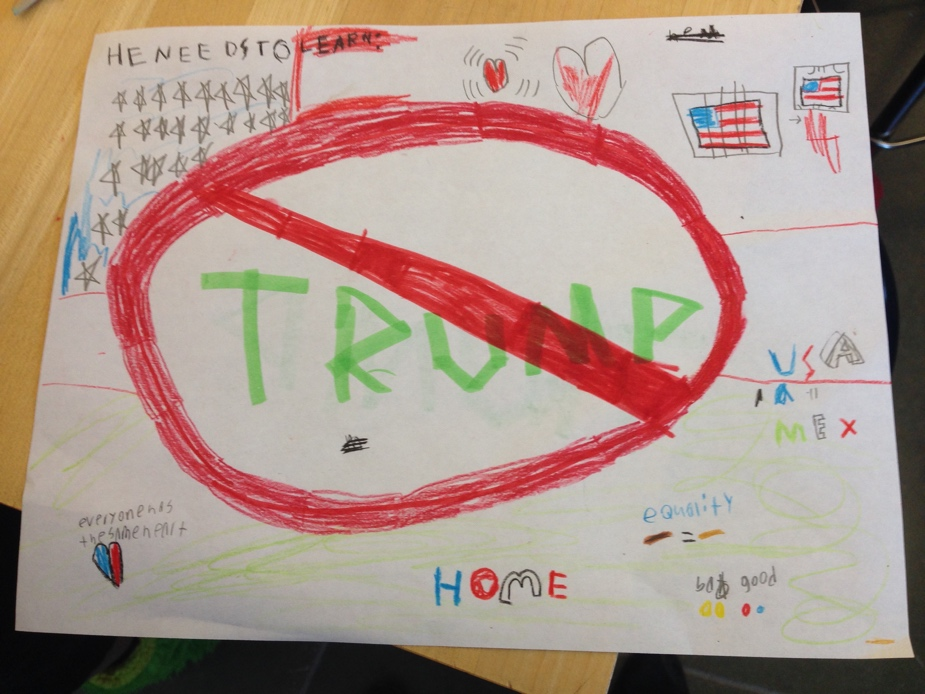 HE NEEDS TO LEARN:
TRUMP
USA
MEX
everyone has
the same heart
equality
=
HOME
good